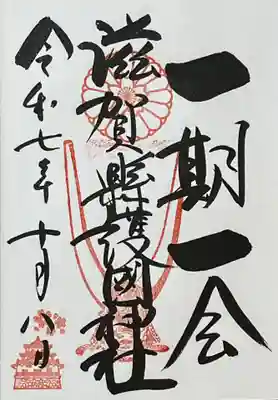 一期一会
滋賀縣護國神社
令和七年十月八日